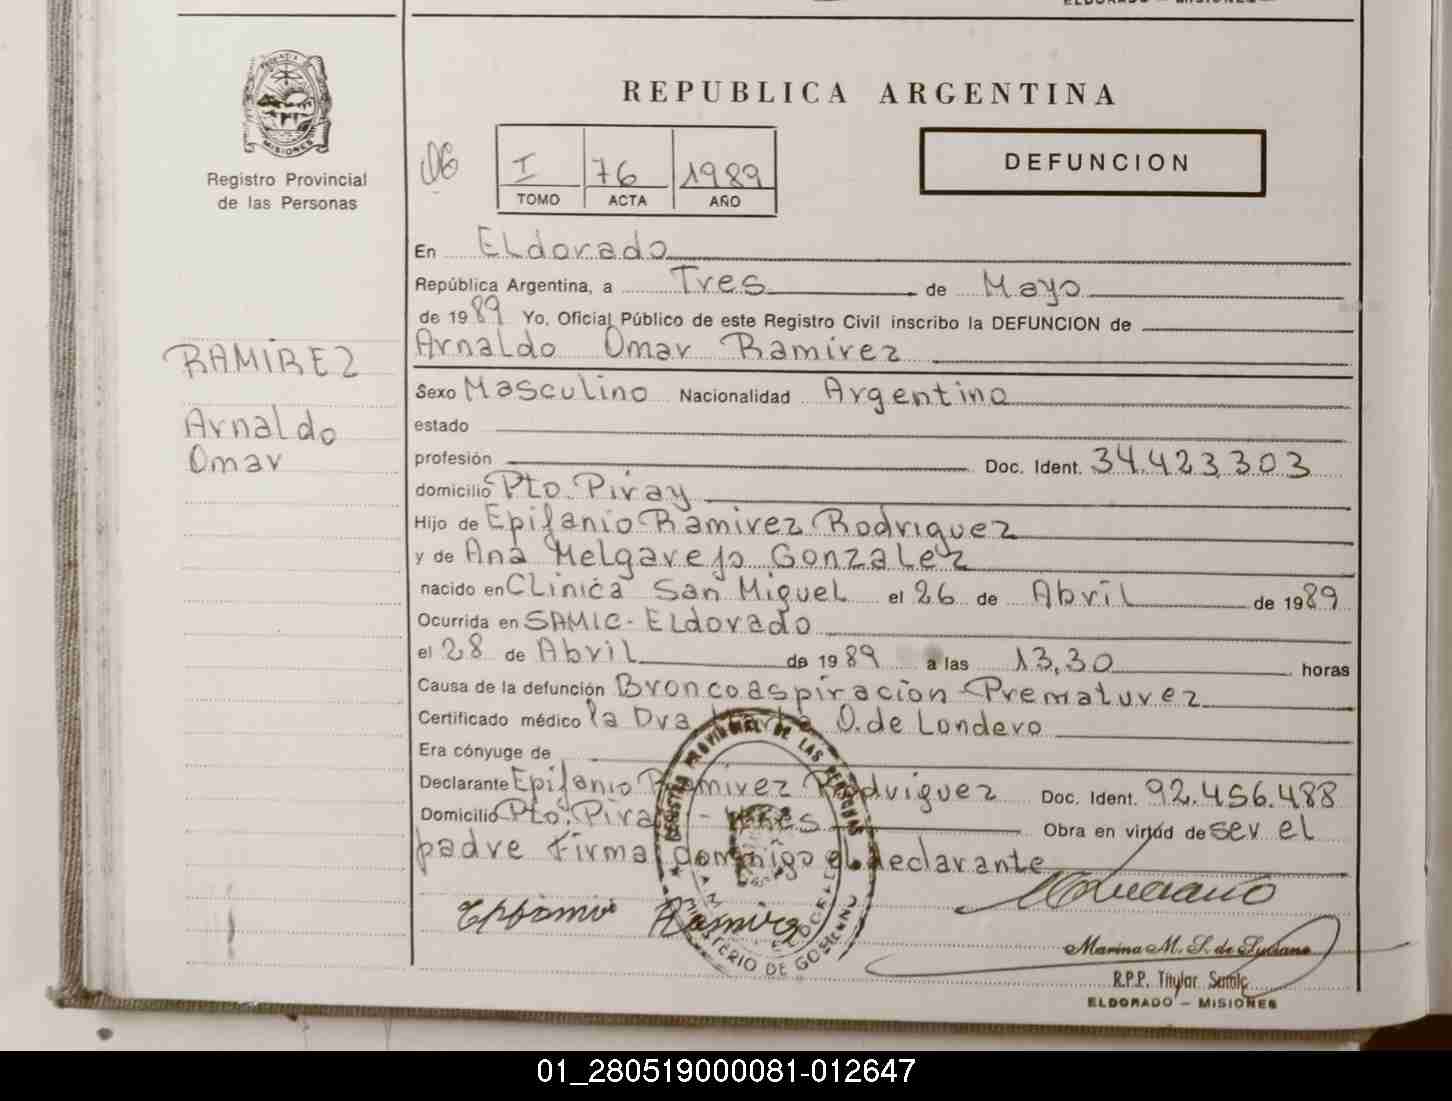 ELDORADO — MISIONES
PROVINCIA DE
MISIONES
Registro Provincial
de las Personas
REPUBLICA ARGENTINA
06
I 76 1989
TOMO ACTA AÑO
DEFUNCION
En Eldorado
República Argentina, a Tres de Mayo
de 1989 Yo, Oficial Público de este Registro Civil inscribo la DEFUNCION de
Arnaldo Omar Ramirez
RAMIREZ
Arnaldo
Omar
Sexo Masculino Nacionalidad Argentino
estado
profesión Doc. Ident. 34.423.303
domicilio Pto. Piray
Hijo de Epifanio Ramirez Rodriguez
y de Ana Melgarejo Gonzalez
nacido en Clinica San Miguel el 26 de Abril de 1989
Ocurrida en SAMIC - Eldorado
el 28 de Abril de 1989 a las 13,30 horas
Causa de la defunción Broncoaspiración - Prematurez
Certificado médico la Dra Marta O. de Londero
Era cónyuge de
Declarante Epifanio Ramirez Rodriguez Doc. Ident. 92.456.488
Domicilio Pto. Piray - Mnes Obra en virtud de ser el
padre Firma conmigo el declarante
Epifanio Ramirez
REGISTRO PROVINCIAL DE LAS PERSONAS
MINISTERIO DE GOBIERNO
Marina M. S. de Luciano
R.P.P. Titular Samic
ELDORADO — MISIONES
01_280519000081-012647